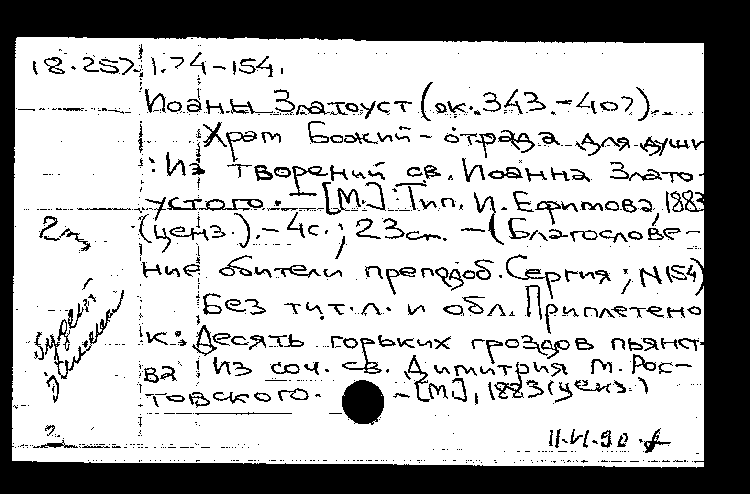 18.257.1.74-154.
Иоанн Златоуст (ок. 343.-407).
Храм Божий - отрада для души
: Из творений св. Иоанна Злато-
устого. - [М.]: Тип. И. Ефимова, 1883
(ценз.). - 4с.; 23cm. - (Благослове-
2 э
ние обители преподоб. Сергия; N154)
Без тит. л. и обл. Приплетено
к: Десять горьких гроздов пьянст-
ва Из соч. св. Димитрия м. Рос-
товского. - [М.], 1883 (ценз.)
2
11.VI.90.